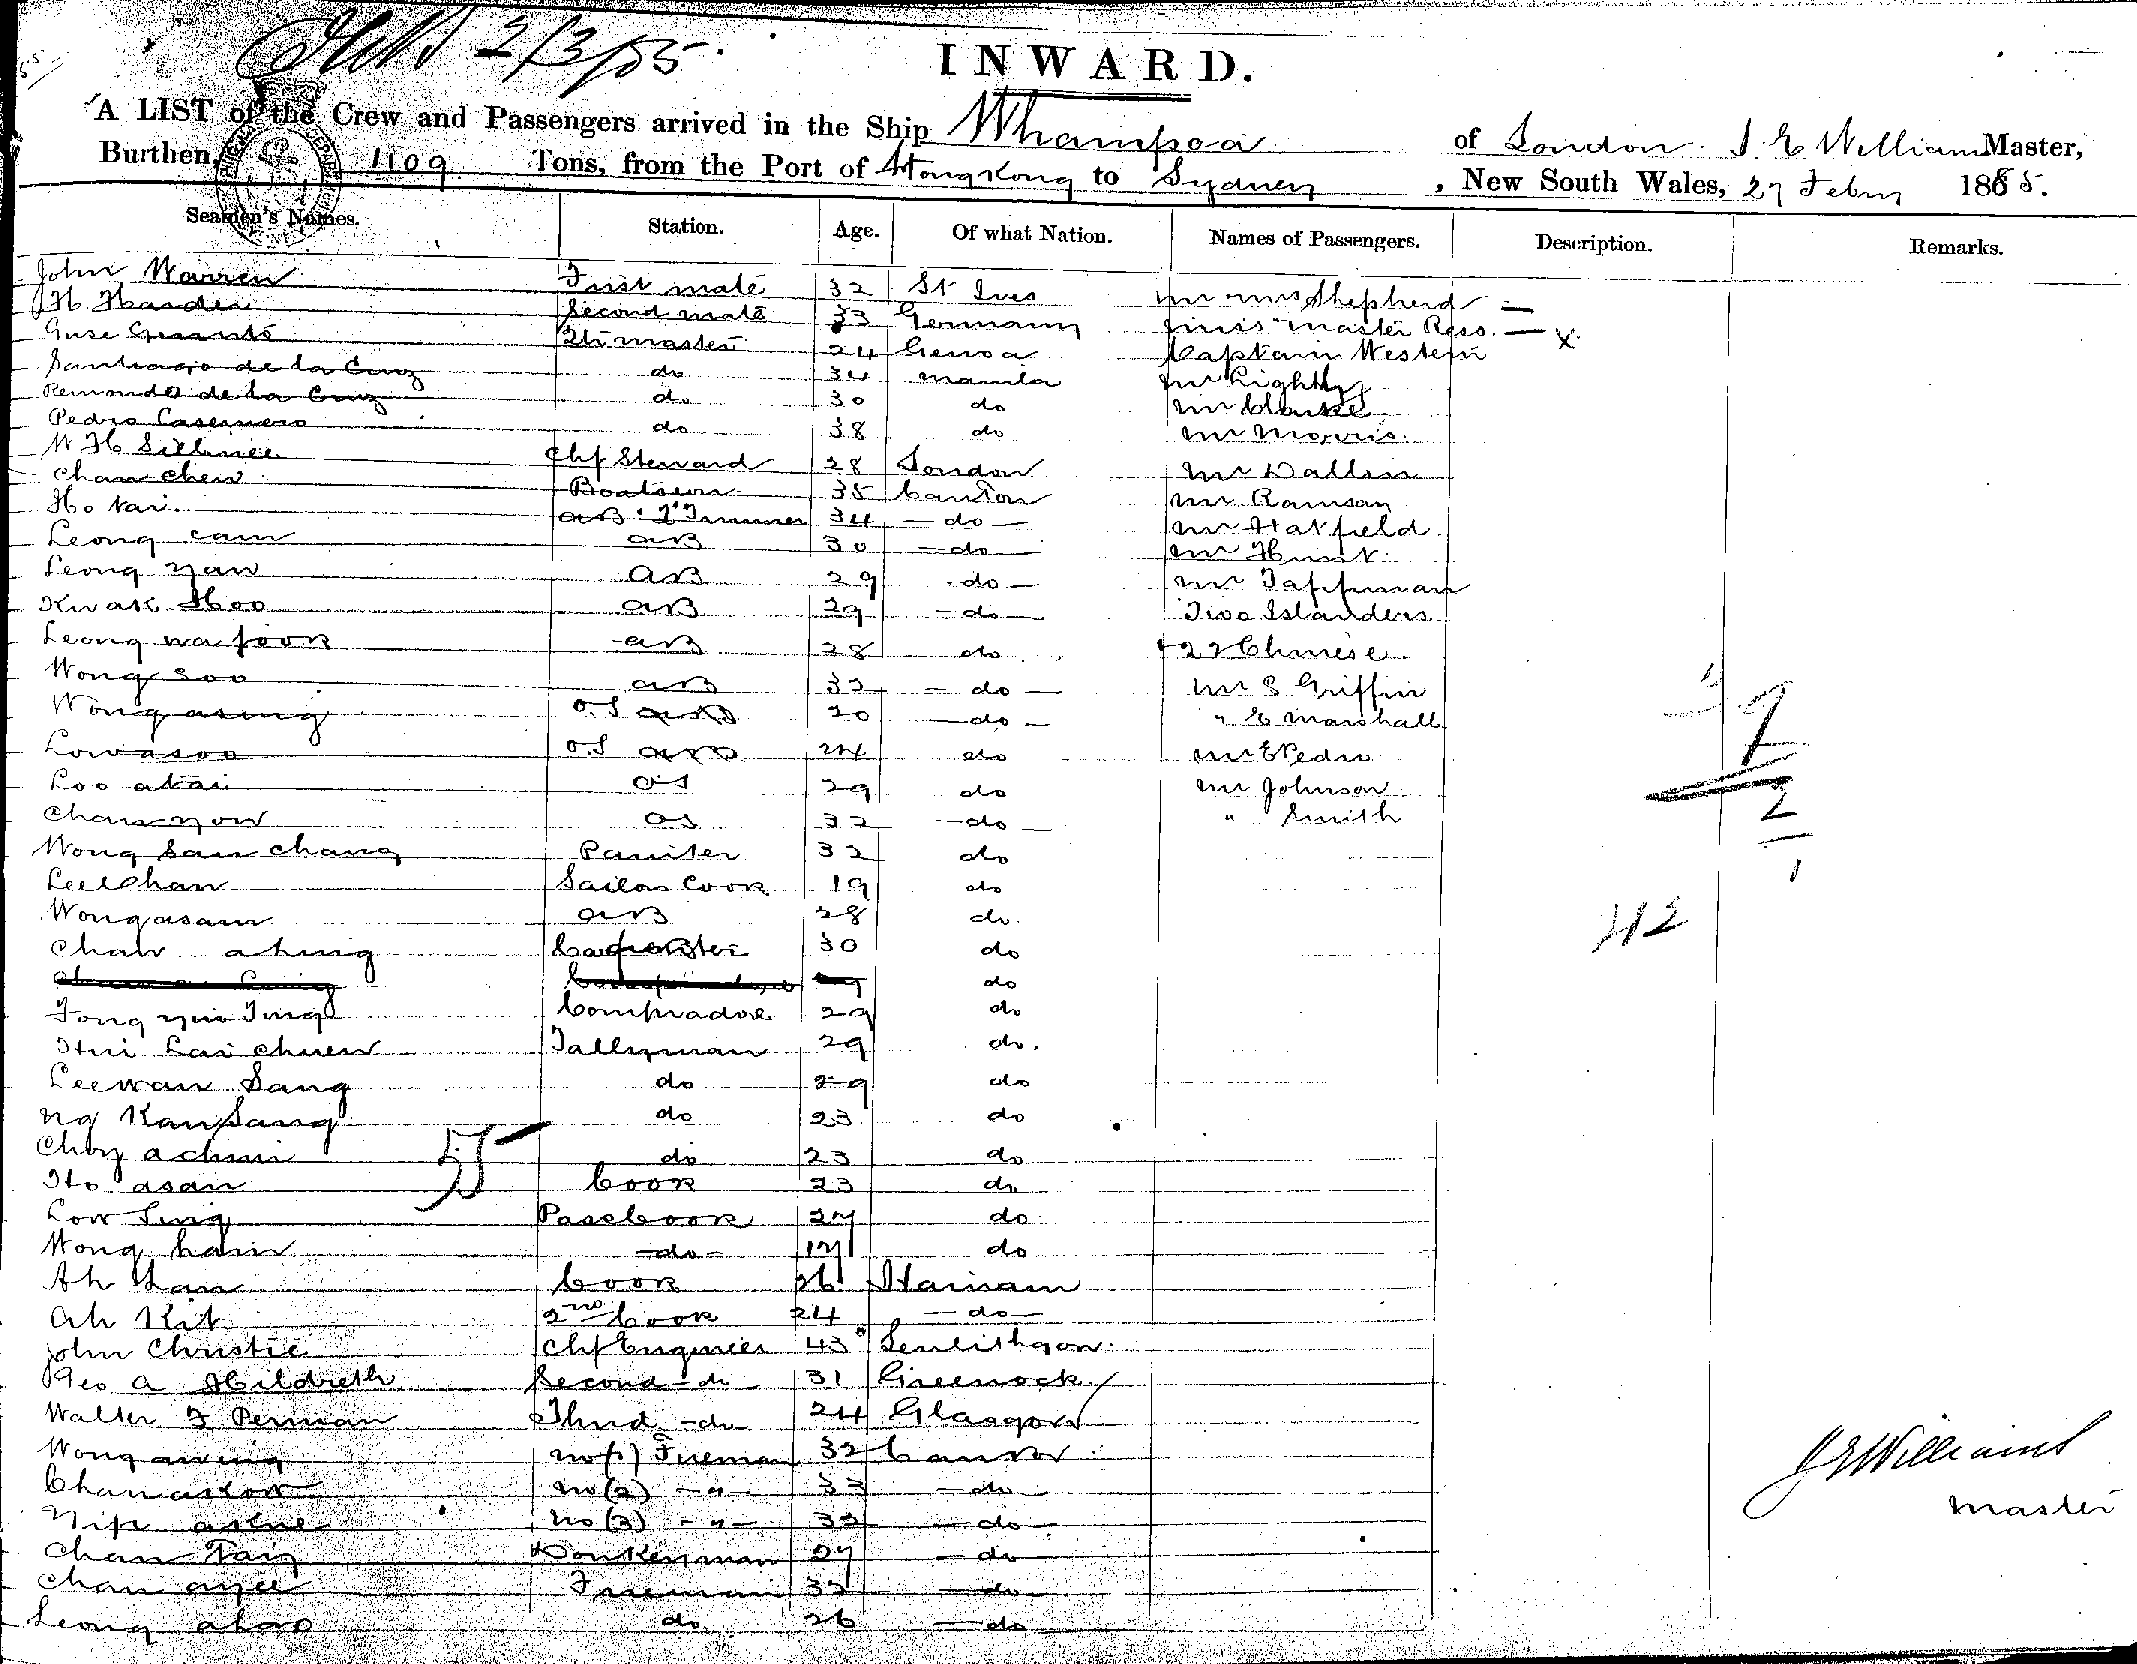 Held 2/3/85.
INWARD.
A LIST of the Crew and Passengers arrived in the Ship Whampoa of London. J. E Williams Master,
Burthen, 1109 Tons, from the Port of Hong Kong to Sydney, New South Wales, 27 Feby 1885.
Seamen's Names. Station. Age. Of what Nation. Names of Passengers. Description. Remarks.
John Warren First mate 32 St Ives Mr Mrs Shepherd —
H Harder Second mate 33 Germany Miss Master Rees. — x
Qtr master 24 Genoa Captain Western
Santiago de la Cruz do 34 Manila Mr Lightly
de la Cruz do 30 do Mr Clarke
Pedro Casemero do 38 do Mr Morris.
W H Chf Steward 28 London Mr Dallen
Chan Chew Boatswn 35 Canton Mr Ramsay
Ho tai. AB & 34 — do — Mr Hatfield
Leong Cam AB 30 — do — Mr Hunt.
Leong yaw AB 29 do — Mr Tappman
Kwak Hoo AB 29 — do — Two Islanders
Leong wa fook AB 28 do + 22 Chinese
Wong soo AB 32 — do — Mr S Griffin
Wong asing O.S 20 — do — " E Marshall
Low asoo O.S 24 do Mr E Pedro
Loo atai OS 29 do Mr Johnson
Chan yow OS 32 — do — " Smith
Wong San Chang Painter 32 do
Lee Chan Sailors Cook 19 do
Wong asam AB 28 do.
Chaw ahing 30 do
do
Tong yin Ting Compradore 29 do
Hui Lai Chuen Tallyman 29 do.
Lee wan Sang do 29 do
Ng Kan Sang do 23 do
Choy achin do 23 do
Ho asan Cook 23 do
55
Low Sing Pass Cook 27 do
Wong ham — do — 17 do
Ah han Cook 26 Hainam
Ah Kit 2nd Cook 24 — do —
John Christie Chf Engineer 43 Linlithgow.
Geo A Hildreth Second — do 31 Greenock
Walter F Perman Third — do 24 Glasgow
Wong awing No (1) Fireman 32 Canton
Chan No (2) — " — 33 — do
No (3) — " — 32 — do
Chan Taiy Donkeyman 27 — do
Chan ayee Fireman 32 — do
Leong ahoo do 26 — do
9
2
1
112
J E Williams
Master